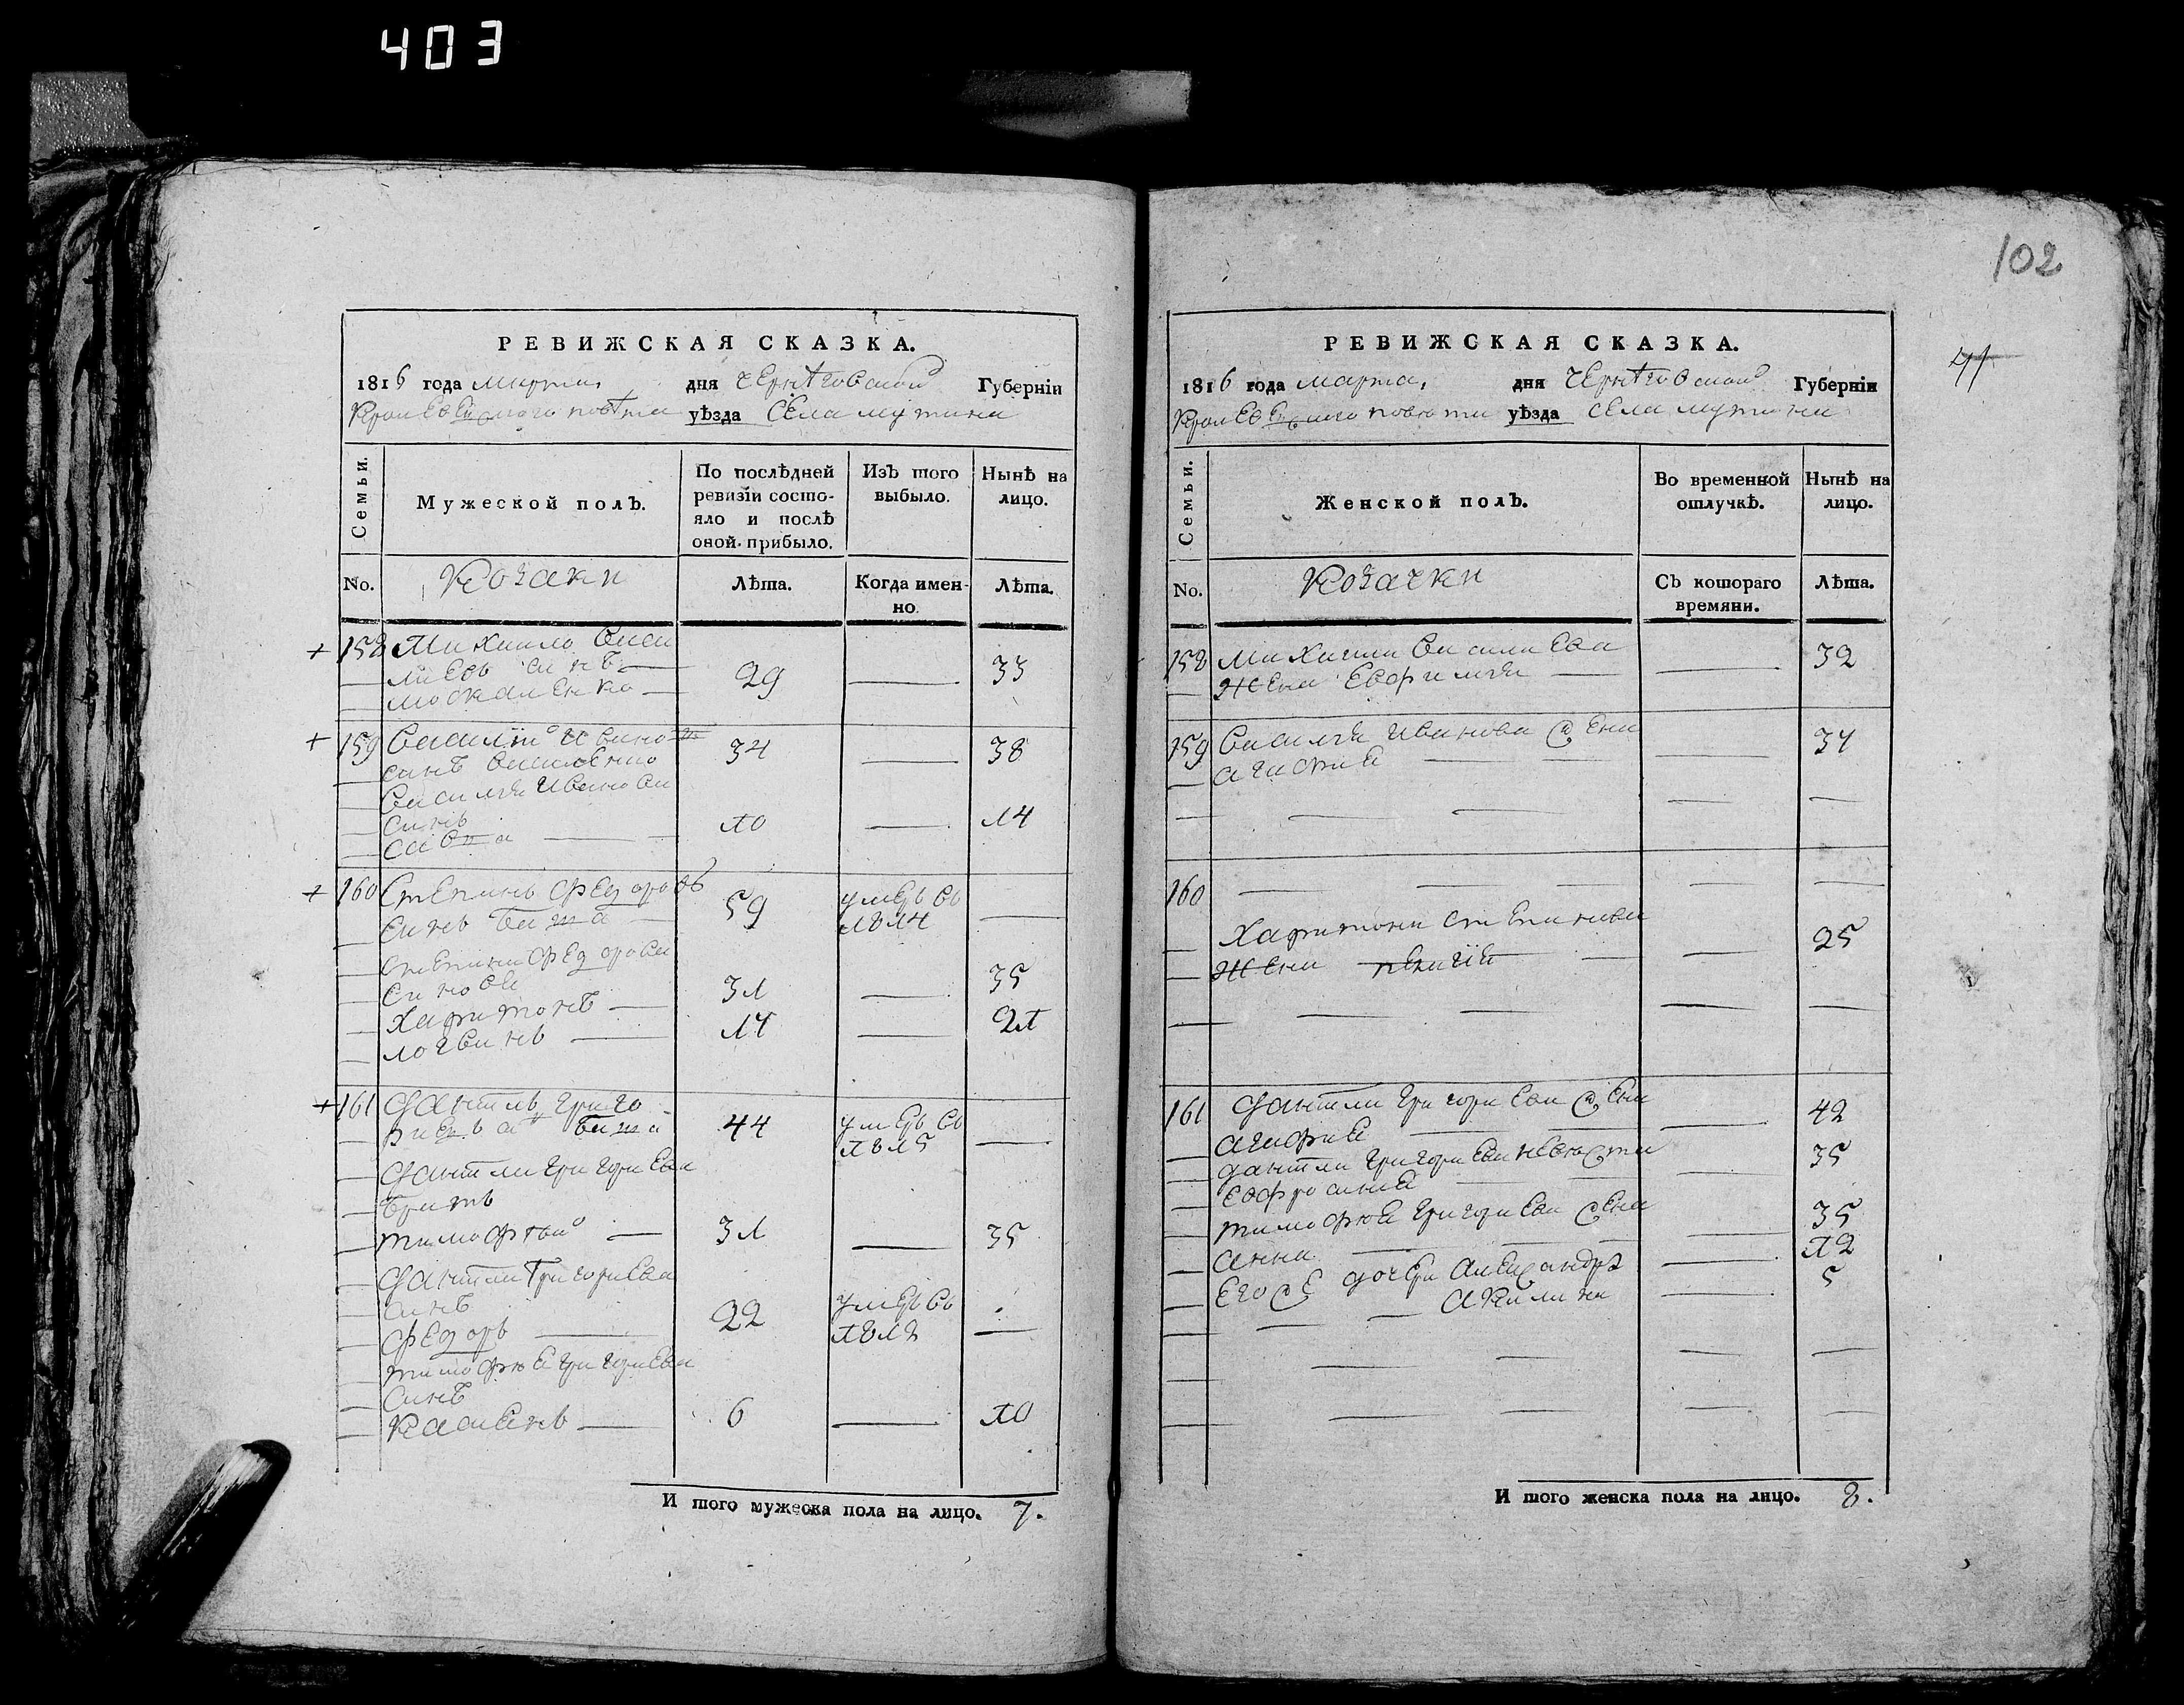 403
102
РЕВИЖСКАЯ СКАЗКА.
1816 года марта дня Чернѣговской Губерніи
Кролевецкого повѣта уѣзда Села мутина
Семьи.
Мужеской полъ.
По послѣдней ревизіи состояло и послѣ оной прибыло.
Изъ того выбыло.
Нынѣ на лицо.
No. Козаки Лѣта. Когда именно. Лѣта.
+ 158 Михаило Васи
лиевъ синъ 29 — 33
москаленко
+ 159 Василій Ивано
синъ 34 — 38
Василия Иванова
синъ 10 — 14
Сава
+ 160 Степанъ Федоровъ 59 умеръ въ —
синъ 1814
Степана Федорова
синове
Харитонъ — 31 — 35
логвинъ — 17 — 21
+ 161 Данѣлъ Григо 44 умеръ въ —
1815
Данѣла Григориева
братъ
тимофѣй — 31 — 35
Данѣла Григориева
синъ 22 умеръ въ
Федоръ — 1812 —
тимофея Григориева
синъ
Касиянъ — 6 — 10
И того мужеска пола на лицо. 7.
РЕВИЖСКАЯ СКАЗКА.
1816 года марта, дня Чернѣговской Губерніи
Кролевецкого повѣта уѣзда села мутина
Семьи.
Женской полъ.
Во временной отлучкѣ.
Нынѣ на лицо.
No. Козачки Съ котораго времяни. Лѣта.
158 Михаила Василиева — 32
жена Евфимия
159 Василия Иванова жена — 37
агафия
160
Харитона Степанова — 25
жена пелагія
161 Данѣла Григориева жена — 42
агафия
Данѣла Григориева невѣстка — 35
Евфросиния
тимофея Григориева жена — 35
анна
Его же дочери александра — 12
— акилина — 5
И того женска пола на лицо. 8.